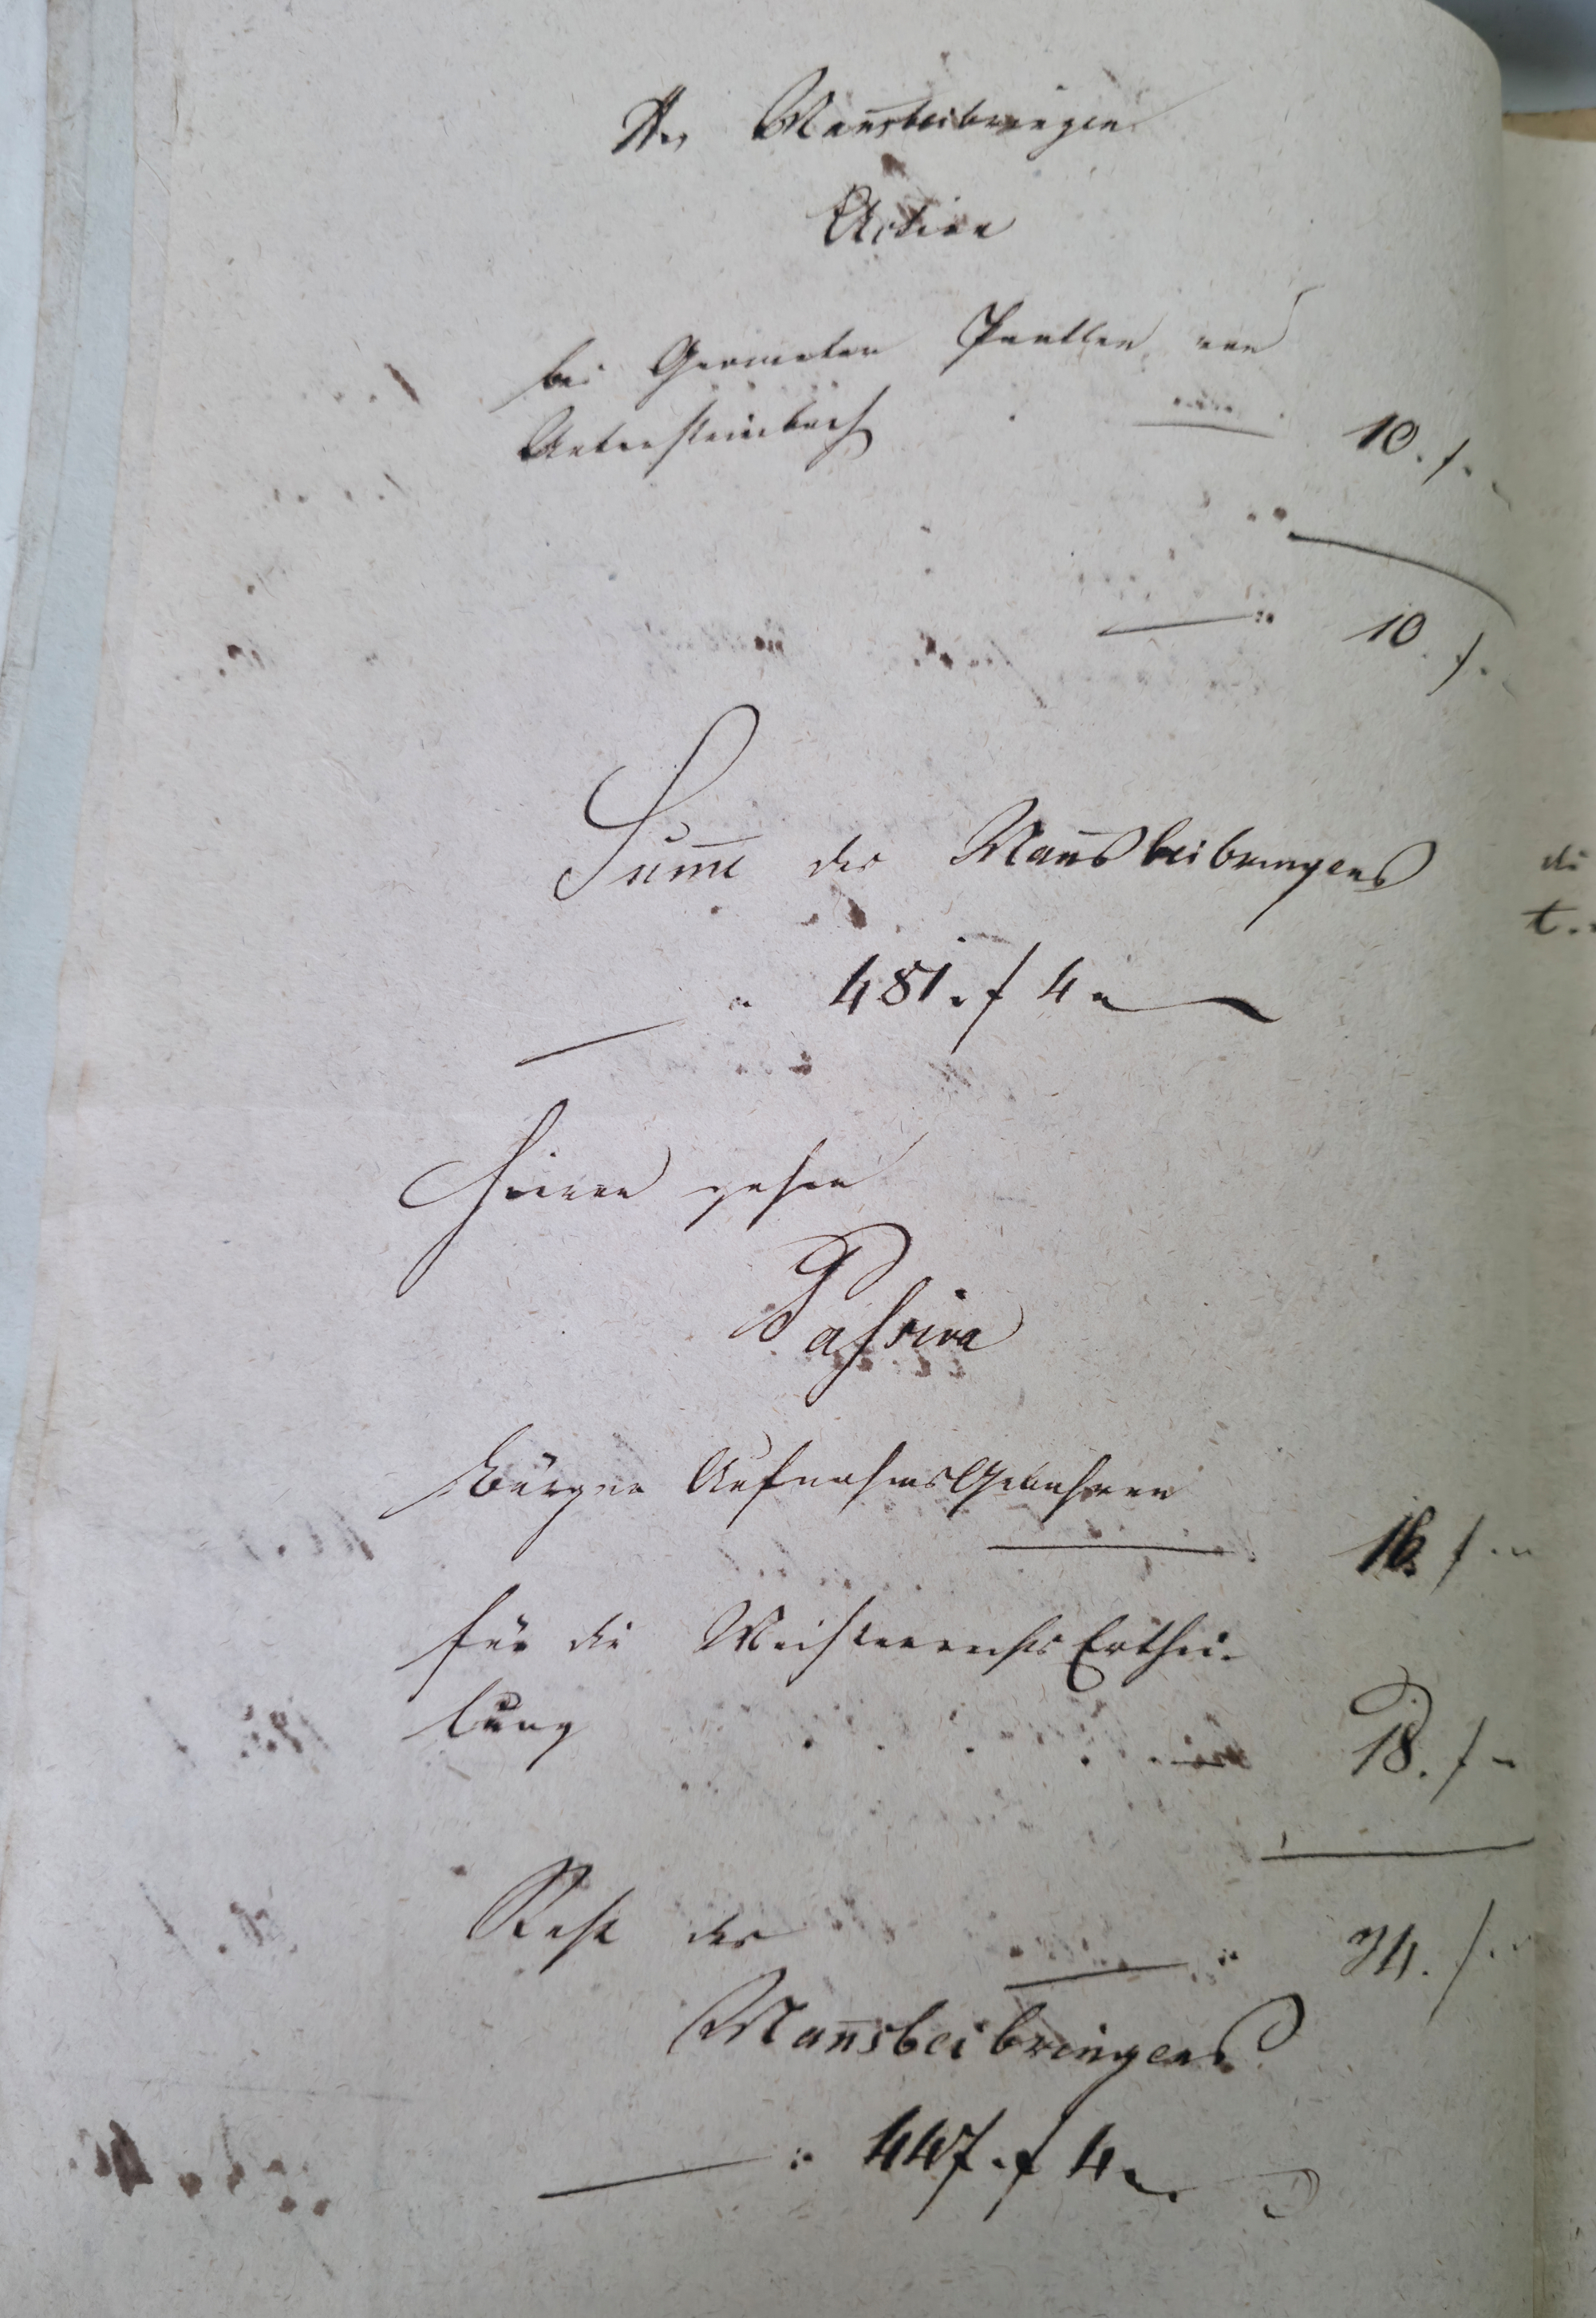 Des Man̄sbeibringen
Activa
bei Geometer von
Untersteinbach 10. f.
10. f.
Sum̄e des Man̄sbeibringens
481. f 4
Hievon gehen
Passiva
Bürger Aufnahms Gebühren
16. f
für die Meisterrechts Erthei-
lung 18. f
34. f
Rest des
Man̄sbeibringens
447. f 4